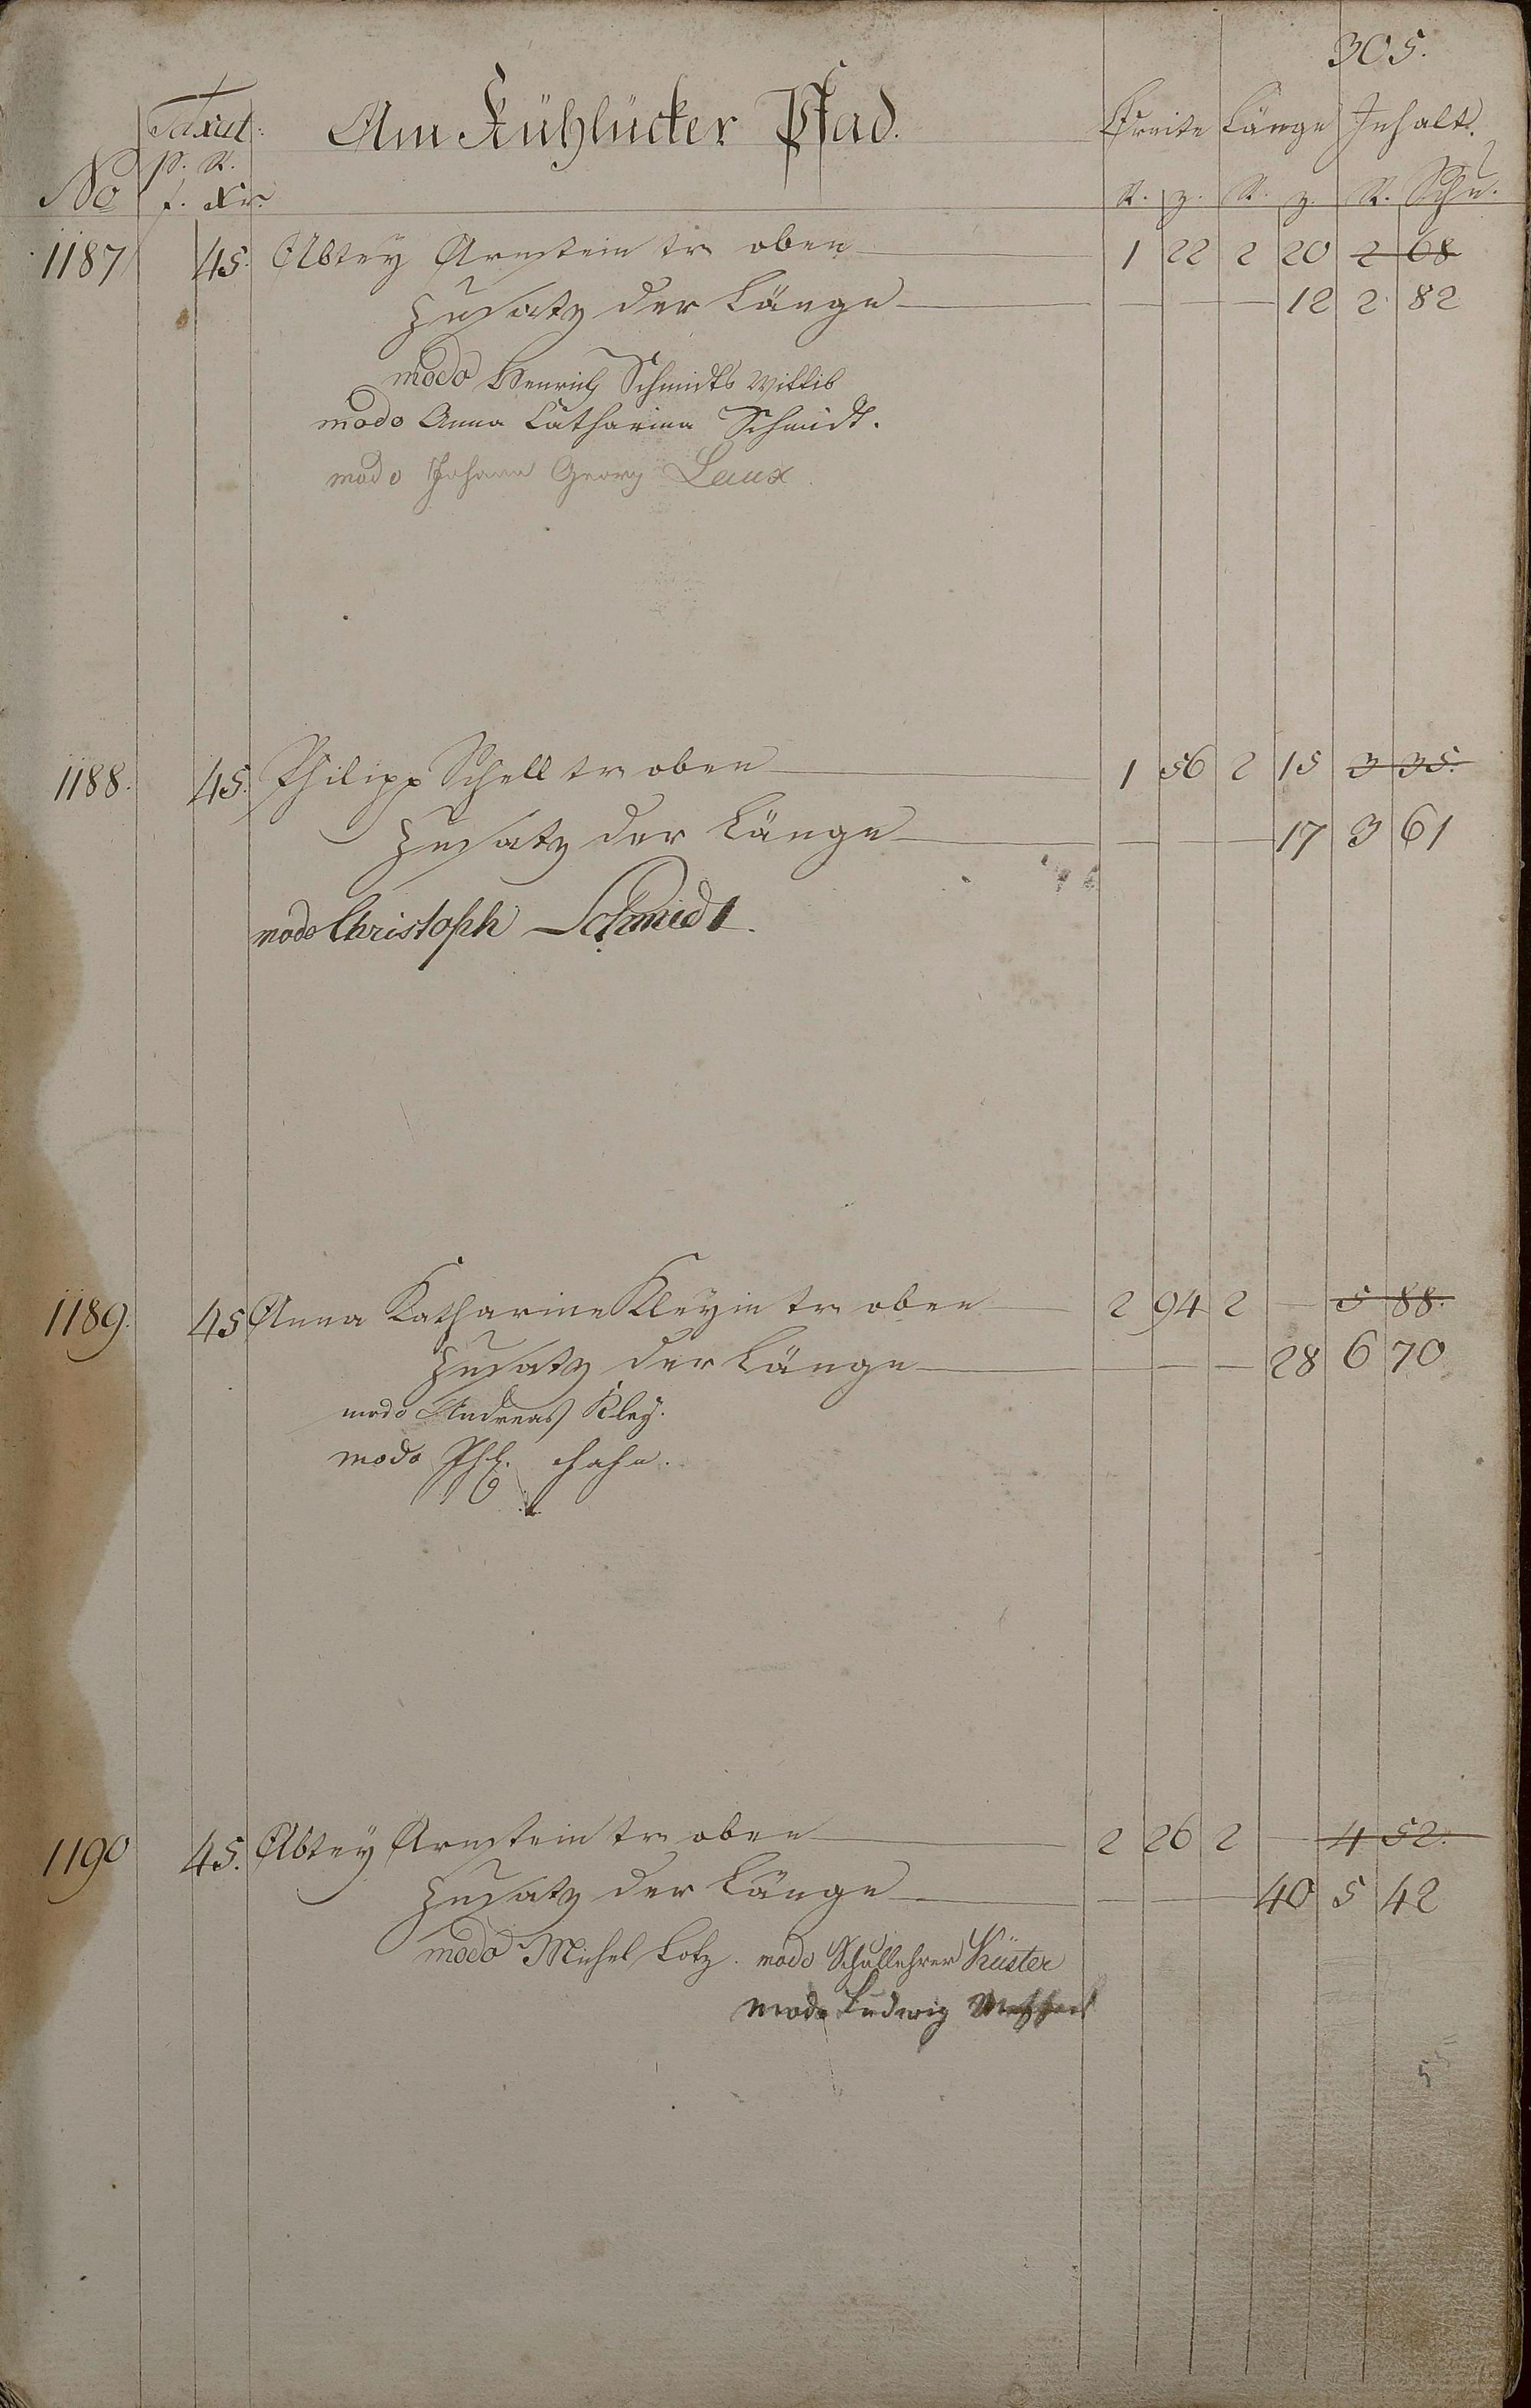 305.
Taxat: Am Kühlücker Pfad. Breite Länge Inhalt.
p. R.
No f. Xr. R. z. R. z. R. Schu.
1187 45. Abtey Arnstein tr oben 1 22 2 20 2 68
Zusatz der Länge 12 2 82
modo Henrich Schmidts Wittib
modo Anna Catharina Schmidt.
modo Johann Georg Laux.
1188. 45. Philipp Schell tr oben 1 56 2 15 3 35.
Zusatz der Länge 17 3 61
modo Christoph Schmidt.
1189. 45 Anna Katharine Kleyin tr oben 2 94 2 — 5 88.
Zusatz der Länge 28 6 70
modo Andreas Kley.
modo Phil. Hahn.
1190 45. Abtey Arnstein tr oben 2 26 2 — 4 52.
Zusatz der Länge 40 5 42
modo Michel Lotz. modo Schullehrer Küster
modo Ludwig